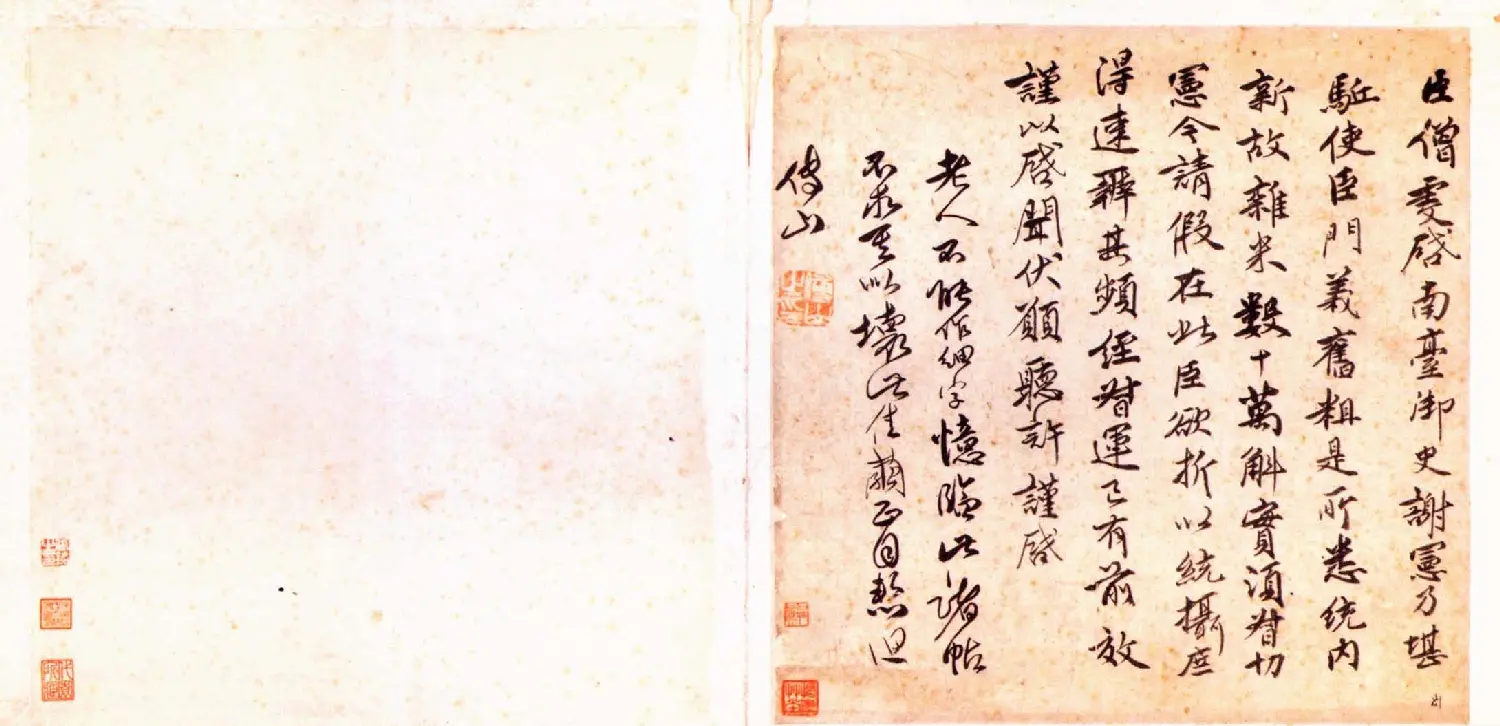 臣僧虔啓南臺御史謝憲乃堪
駈使臣門義舊粗是所悉統內
新故雜米數十萬斛實須督切
憲今請假在此臣欲折以統攝庶
得速辦其頻經督運已有前效
謹以啓聞伏願聽許謹啓
老人不能作細字憶臨此諸帖
不敢草以壞此佳繭正自愁但
傅山